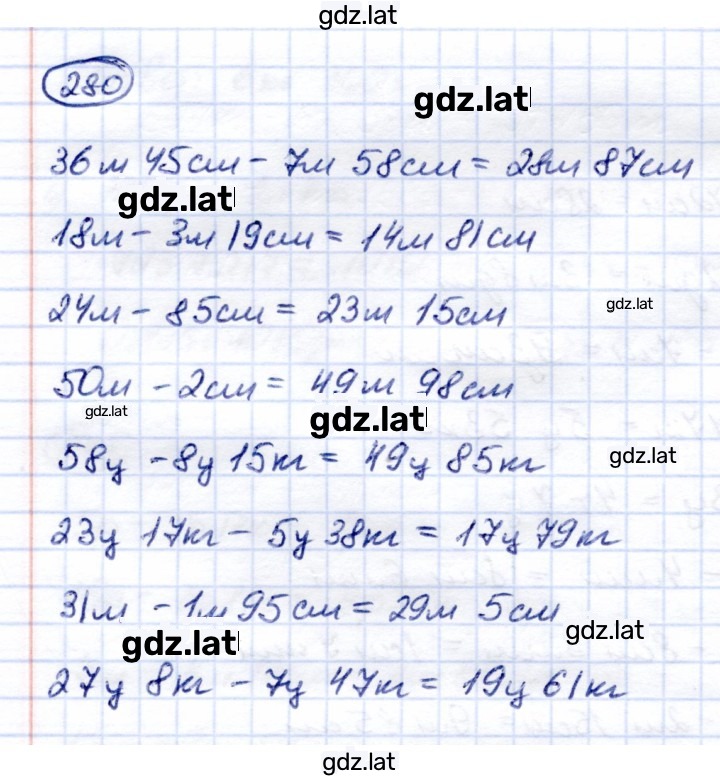 gdz.lat
280
gdz.lat
36м 45см - 7м 58см = 28м 87см
gdz.lat
18м - 3м 19см = 14м 81см
24м - 85см = 23м 15см
gdz.lat
50м - 2см = 49м 98см
gdz.lat
gdz.lat
58ц - 8ц 15кг = 49ц 85кг
gdz.lat
23ц 17кг - 5ц 38кг = 17ц 79кг
31м - 1м 95см = 29м 5см
gdz.lat
gdz.lat
27ц 8кг - 7ц 47кг = 19ц 61кг
gdz.lat